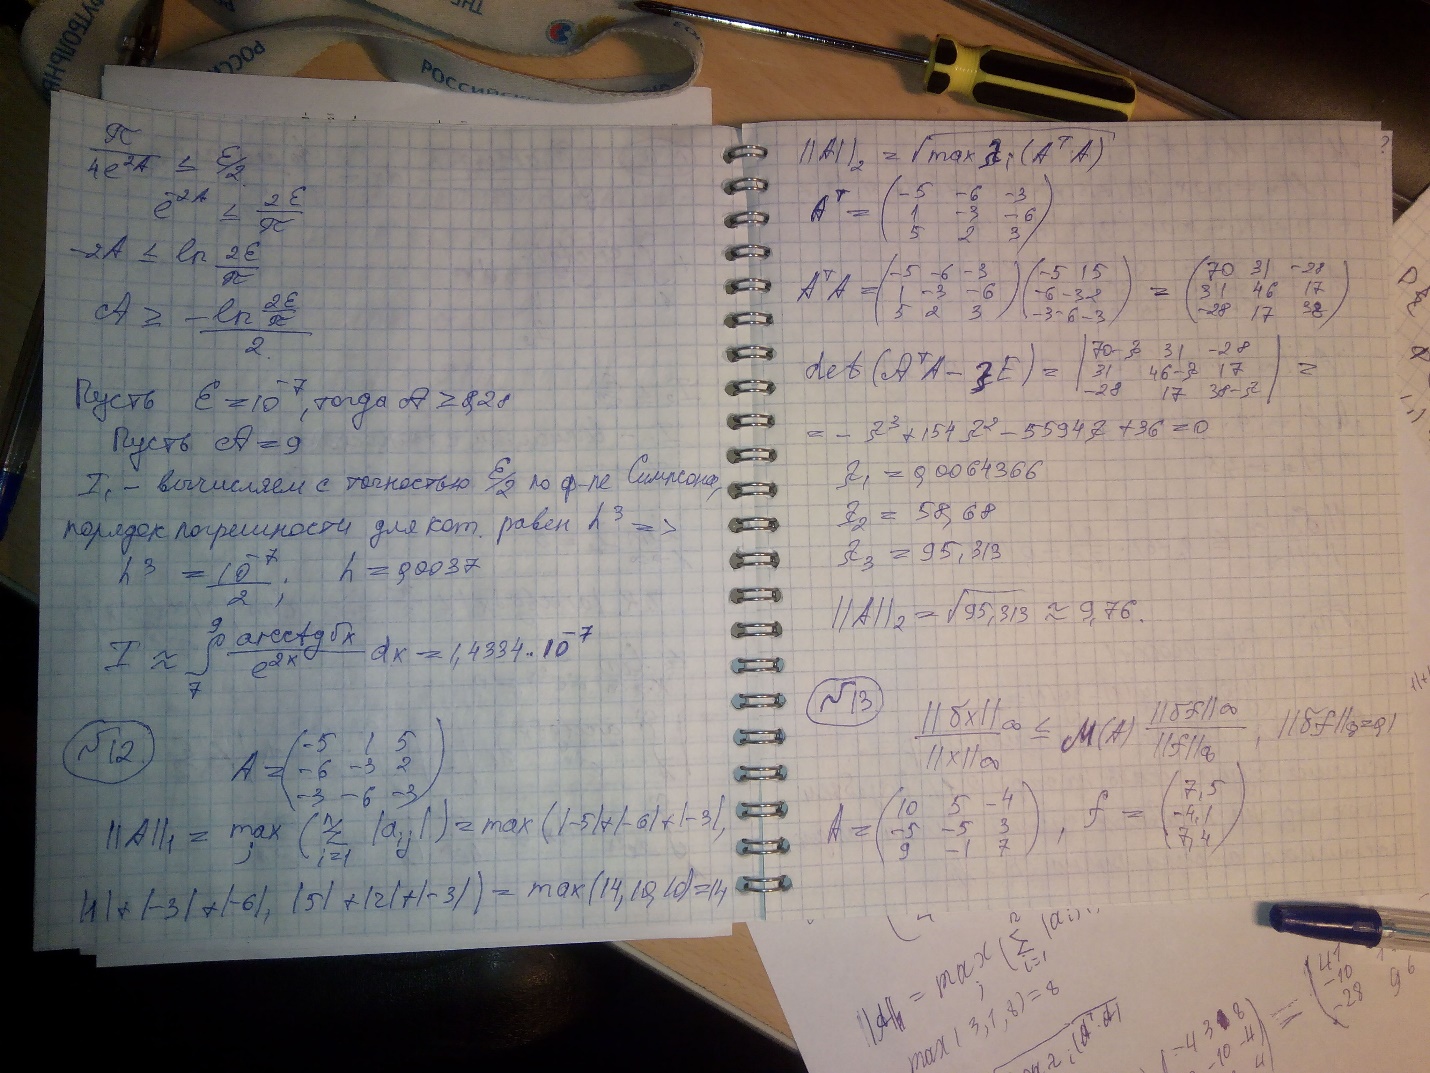 РОССИЙС
РОССИЙС
π/(4e^2A) ≤ ε/2
e^-2A ≤ 2ε/π
-2A ≤ ln 2ε/π
A ≥ -ln(2ε/π)/2
Пусть ε = 10^-7, тогда A ≥ 8,28
Пусть A = 9
I₁ - вычисляем с точностью ε/2 по ф-ле Симпсона,
порядок погрешности для кот. равен h^3 =>
h^3 = 10^-7/2; h = 0,0037
I ≈ ∫ arcctg 5x / e^2x dx = 1,4334·10^-7
N12
A = (-5 1 5
-6 -3 2
-3 -6 -3)
||A||₁ = max_j (Σ_{i=1}^n |a_ij|) = max(|-5|+|-6|+|-3|,
|1|+|-3|+|-6|, |5|+|2|+|-3|) = max(14,10,10) = 14
||A||₂ = √max λi (A^T A)
A^T = (-5 -6 -3
1 -3 -6
5 2 3)
A^T A = (-5 -6 -3 (-5 1 5 = (70 31 -28
1 -3 -6 -6 -3 2 31 46 17
5 2 3) -3 -6 -3) -28 17 38)
det(A^T A - λE) = |70-λ 31 -28
31 46-λ 17
-28 17 38-λ| =
= -λ^3 + 154λ^2 - 5594λ + 36 = 0
λ₁ = 0,0064366
λ₂ = 58,68
λ₃ = 95,313
||A||₂ = √95,313 ≈ 9,76.
N13
||δx||∞/||x||∞ ≤ M(A) ||δf||∞/||f||∞, ||δf||∞ = 0,1
A = (10 5 -4
-5 -5 3
9 -1 7), f = (7,5
-4,1
7,4)
||A||₁ = max_j (Σ_{i=1}^n |a_i
max(3,1,8) = 8